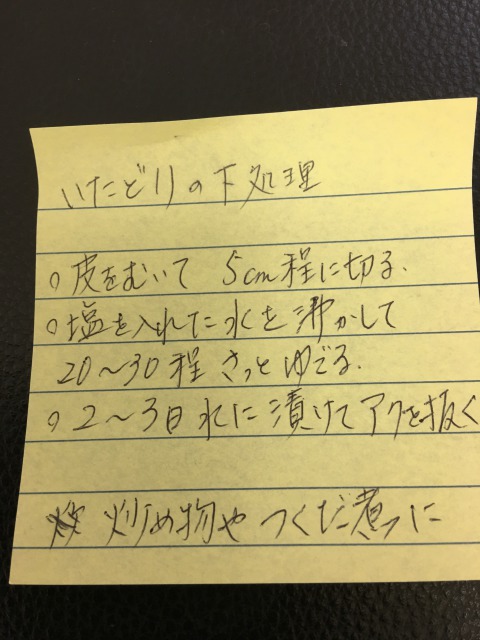 いたどりの下処理
○皮をむいて 5cm程に切る.
○塩を入れた水を沸かして
20〜30程 さっとゆでる.
○2〜3日水に漬けてアクを抜く
炒め物や つくだ煮に